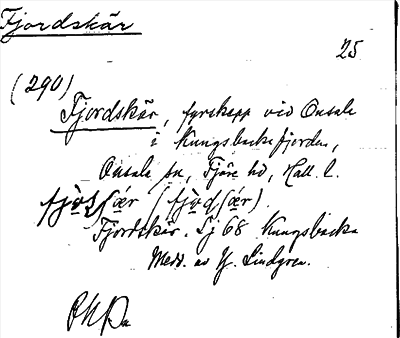 Fjordskär
25
(290)
Fjordskär, fyrskepp vid Onsala
i Kungsbackafjorden,
Onsala sn, Fjäre hd, Hall. l.
Fjordskär. Sj 68 Kungsbacka
Medd. av Hj. Lindgren.